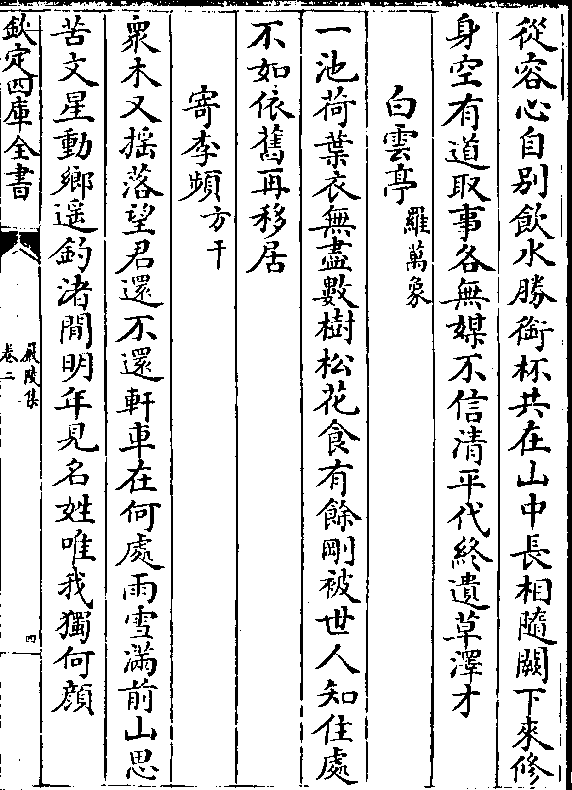 從容心自別飲水勝銜杯共在山中長相隨闕下來修
身空有道取事各無媒不信清平代終遺草澤才
白雲亭 羅萬象
一池荷葉衣無盡數樹松花食有餘剛被世人知住處
不如依舊再移居
寄李頻 方干
衆木又搖落望君還不還軒車在何處雨雪滿前山思
苦文星動鄉遥釣渚閒明年見名姓唯我獨何顔
欽定四庫全書
嚴陵集
卷二
四